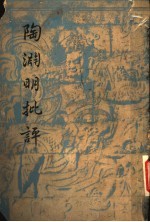 陶淵明批評